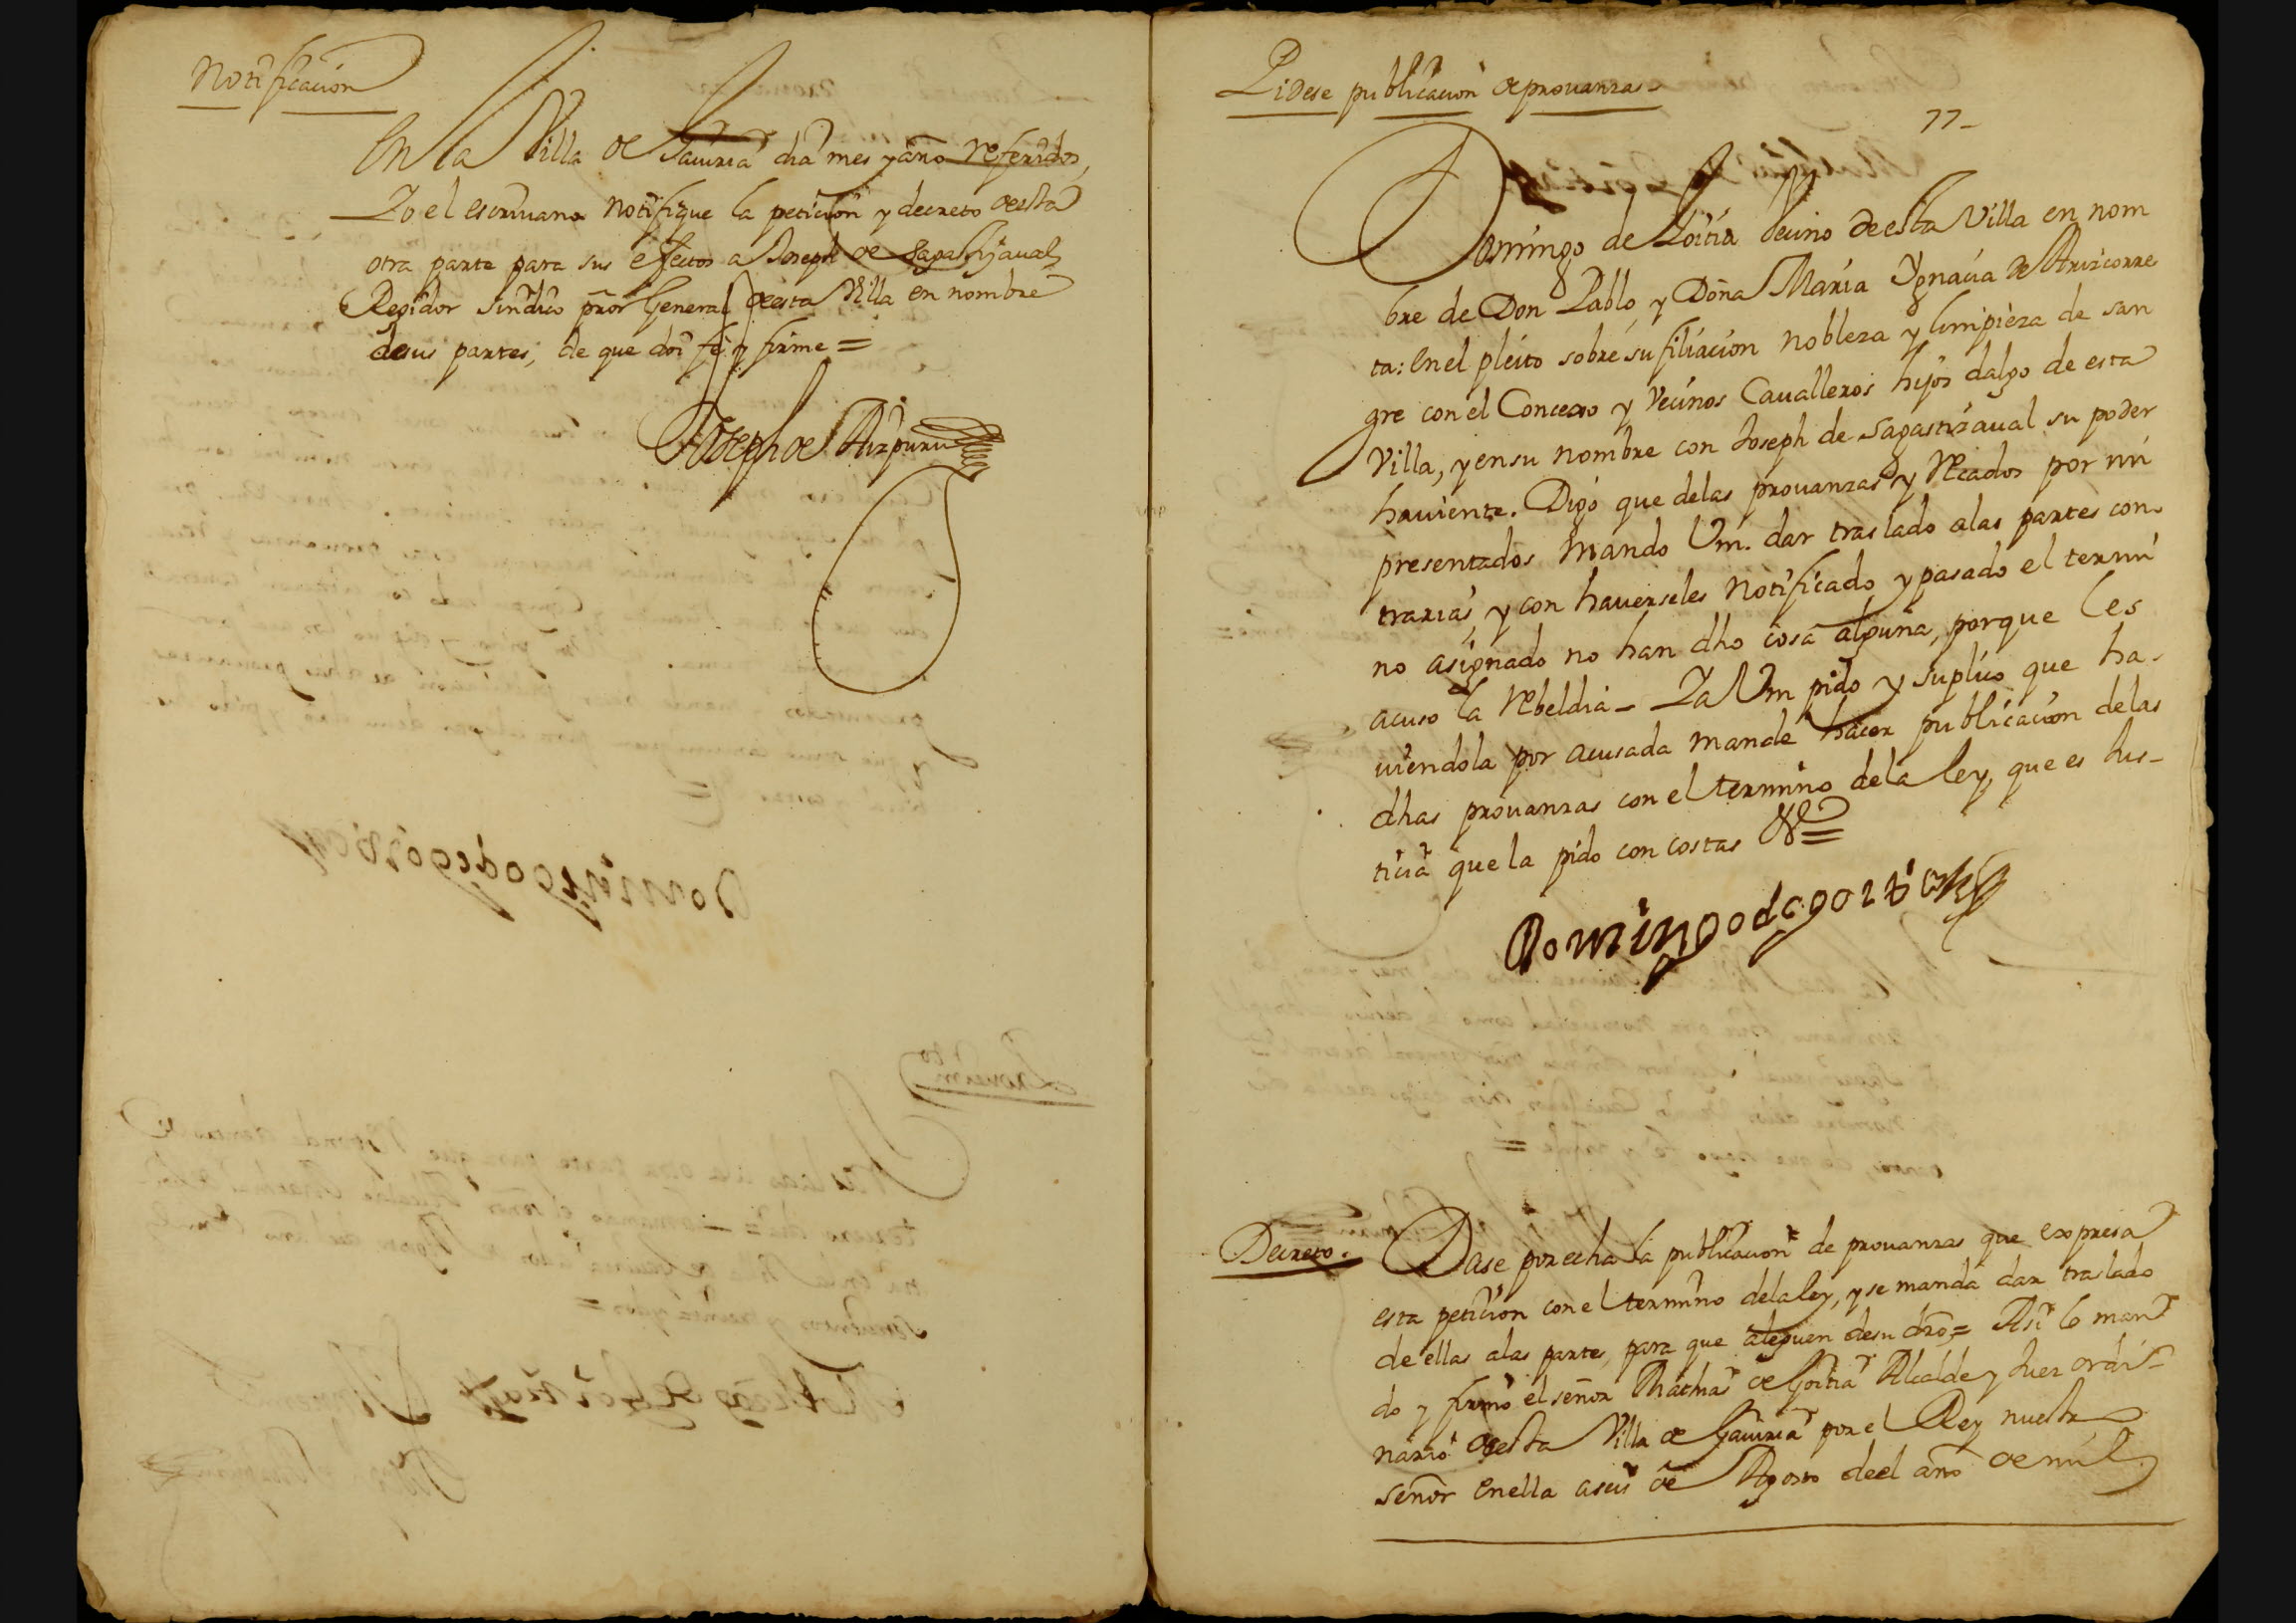 Notificacion
En la Villa de Gauiria dia mes y año referidos,
Yo el escriuano notifique la peticion y decreto de esta
otra parte para sus efectos a Joseph de Sagastiçaual
Regidor sindico prõr General de esta Villa en nombre
de sus partes, de que doi fe y firme =
Joseph de Aizpuru
Pidese publicacion de prouanzas
77-
Domingo de Goitia vecino de esta Villa en nom
bre de Don Pablo y Doña Maria Ygnacia de Arizcorre
ta: En el pleito sobre su filiacion nobleza y limpieza de san
gre con el Concexo y Vecinos Caualleros hijos dalgo de esta
Villa, y en su nombre con Joseph de Sagastizaual su poder
hauiente. Digo que de las prouanzas y recados por mi
presentados mando Vm. dar traslado a las partes con-
trarias, y con hauerseles notificado y pasado el termi
no asignado no han dho cosa alguna, porque les
acuso la rebeldia - Y a Vm pido y suplico que ha-
uiendola por acusada mande hacer publicacion de las
dhas prouanzas con el termino de la ley, que es Jus-
ticia que la pido con costas &ª =
Domingo de goitia
Decreto.
Dase por echa la publicacion de prouanzas que expresa
esta peticion con el termino de la ley, y se manda dar traslado
de ellas a las partes, para que aleguen de su dro = Asi lo man
do y firmo el señor Mathias de Goitia Alcalde y Juez ordi-
nario de esta Villa de Gauiria por el Rey nuestro
señor en ella a seis de Agosto de el año de mil